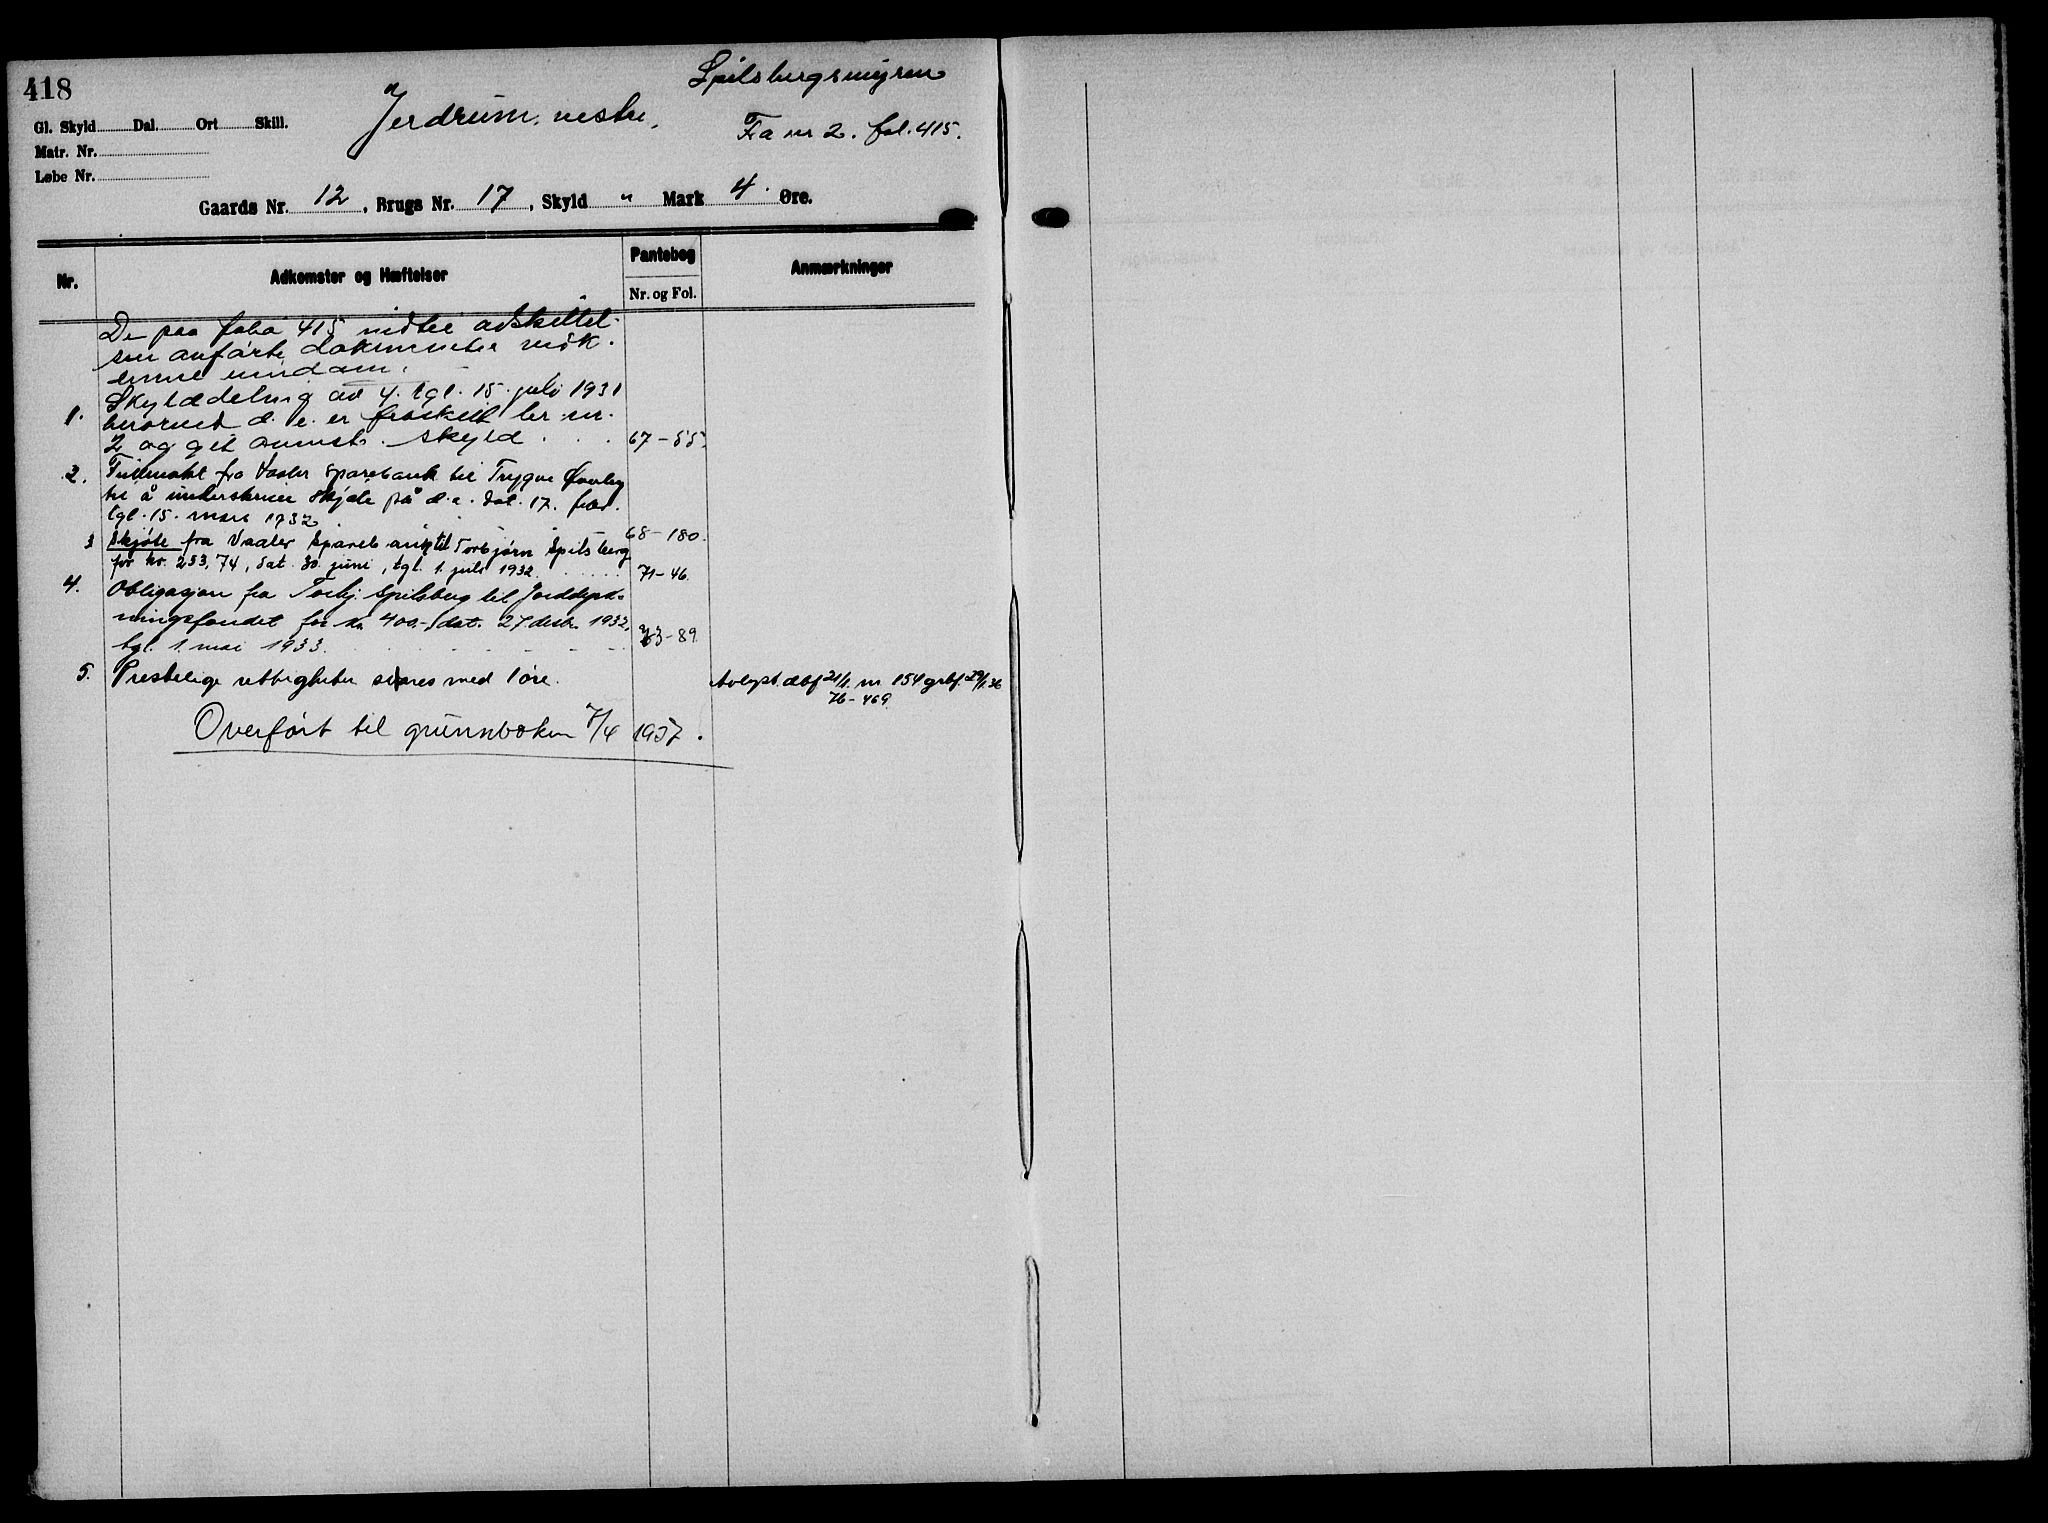 418
Spilsbergsmyren
Jerdrum vestre.
Fra nr 2. fol. 415.
Gl. Skyld Dal. Ort Skill.
Matr. Nr.
Løbe Nr.
Gaards Nr. 12, Brugs Nr. 17, Skyld " Mark 4. Øre.
Nr.
Adkomster og Hæftelser
Pantebog
Nr. og Fol.
Anmærkninger
De paa folio 415 indtil adskillel-
sen anførte dokumenter vedk.
enne eiendom.
1. Skylddeling av 4. tgl. 15. juli 1931
hvorved d. e. er fraskilt br. nr.
2 og git ovennst. skyld . . . 67 - 55.
2. Fullmakt fra Vaaler Sparebank til Trygve
til å underskrive skjøte på d. e. dat. 17. febr.
tgl. 15. mars 1932 68 - 180.
3 Skjøte fra Vaaler Sparebank til Torbjørn Spilsberg
for kr. 253,74, dat. 30. juni, tgl. 1. juli 1932. 71 - 46.
4. Obligasjon fra Torbj. Spilsberg til Jorddyrk-
ningsfondet for kr 400.- dat. 27. desbr. 1932,
tgl. 1. mai 1933. 73 - 89.
5. Prestelige rettigheter svares med 1 øre.
Avløst. dbf 21/1. nr 154 grbf. 29/1.36
76 - 469
Overført til grunnboken 7/4 1937.